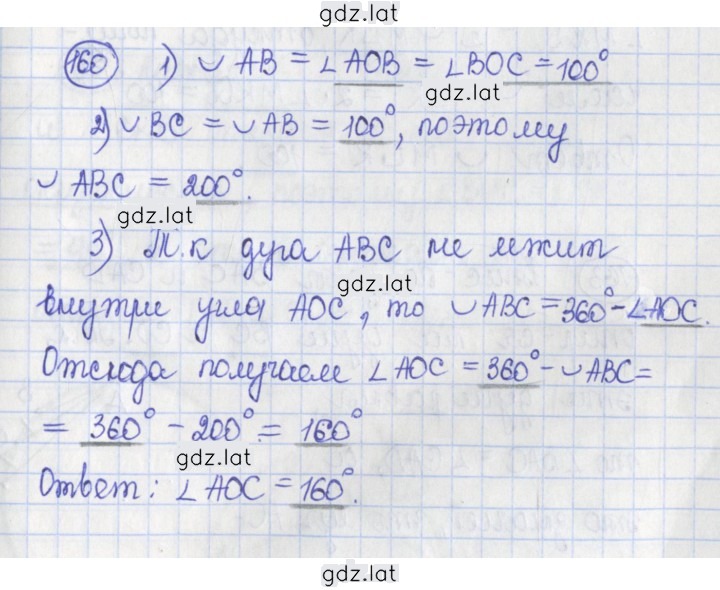 gdz.lat
160 1) ◡ AB = ∠ AOB = ∠ BOC = 100°
gdz.lat
2) ◡ BC = ◡ AB = 100°, поэтому
◡ ABC = 200°.
gdz.lat
3) Т.к дуга ABC не лежит
gdz.lat
внутри угла AOC, то ◡ ABC = 360° - ∠ AOC.
Отсюда получаем ∠ AOC = 360° - ◡ ABC =
= 360° - 200° = 160°
gdz.lat
Ответ: ∠ AOC = 160°.
gdz.lat